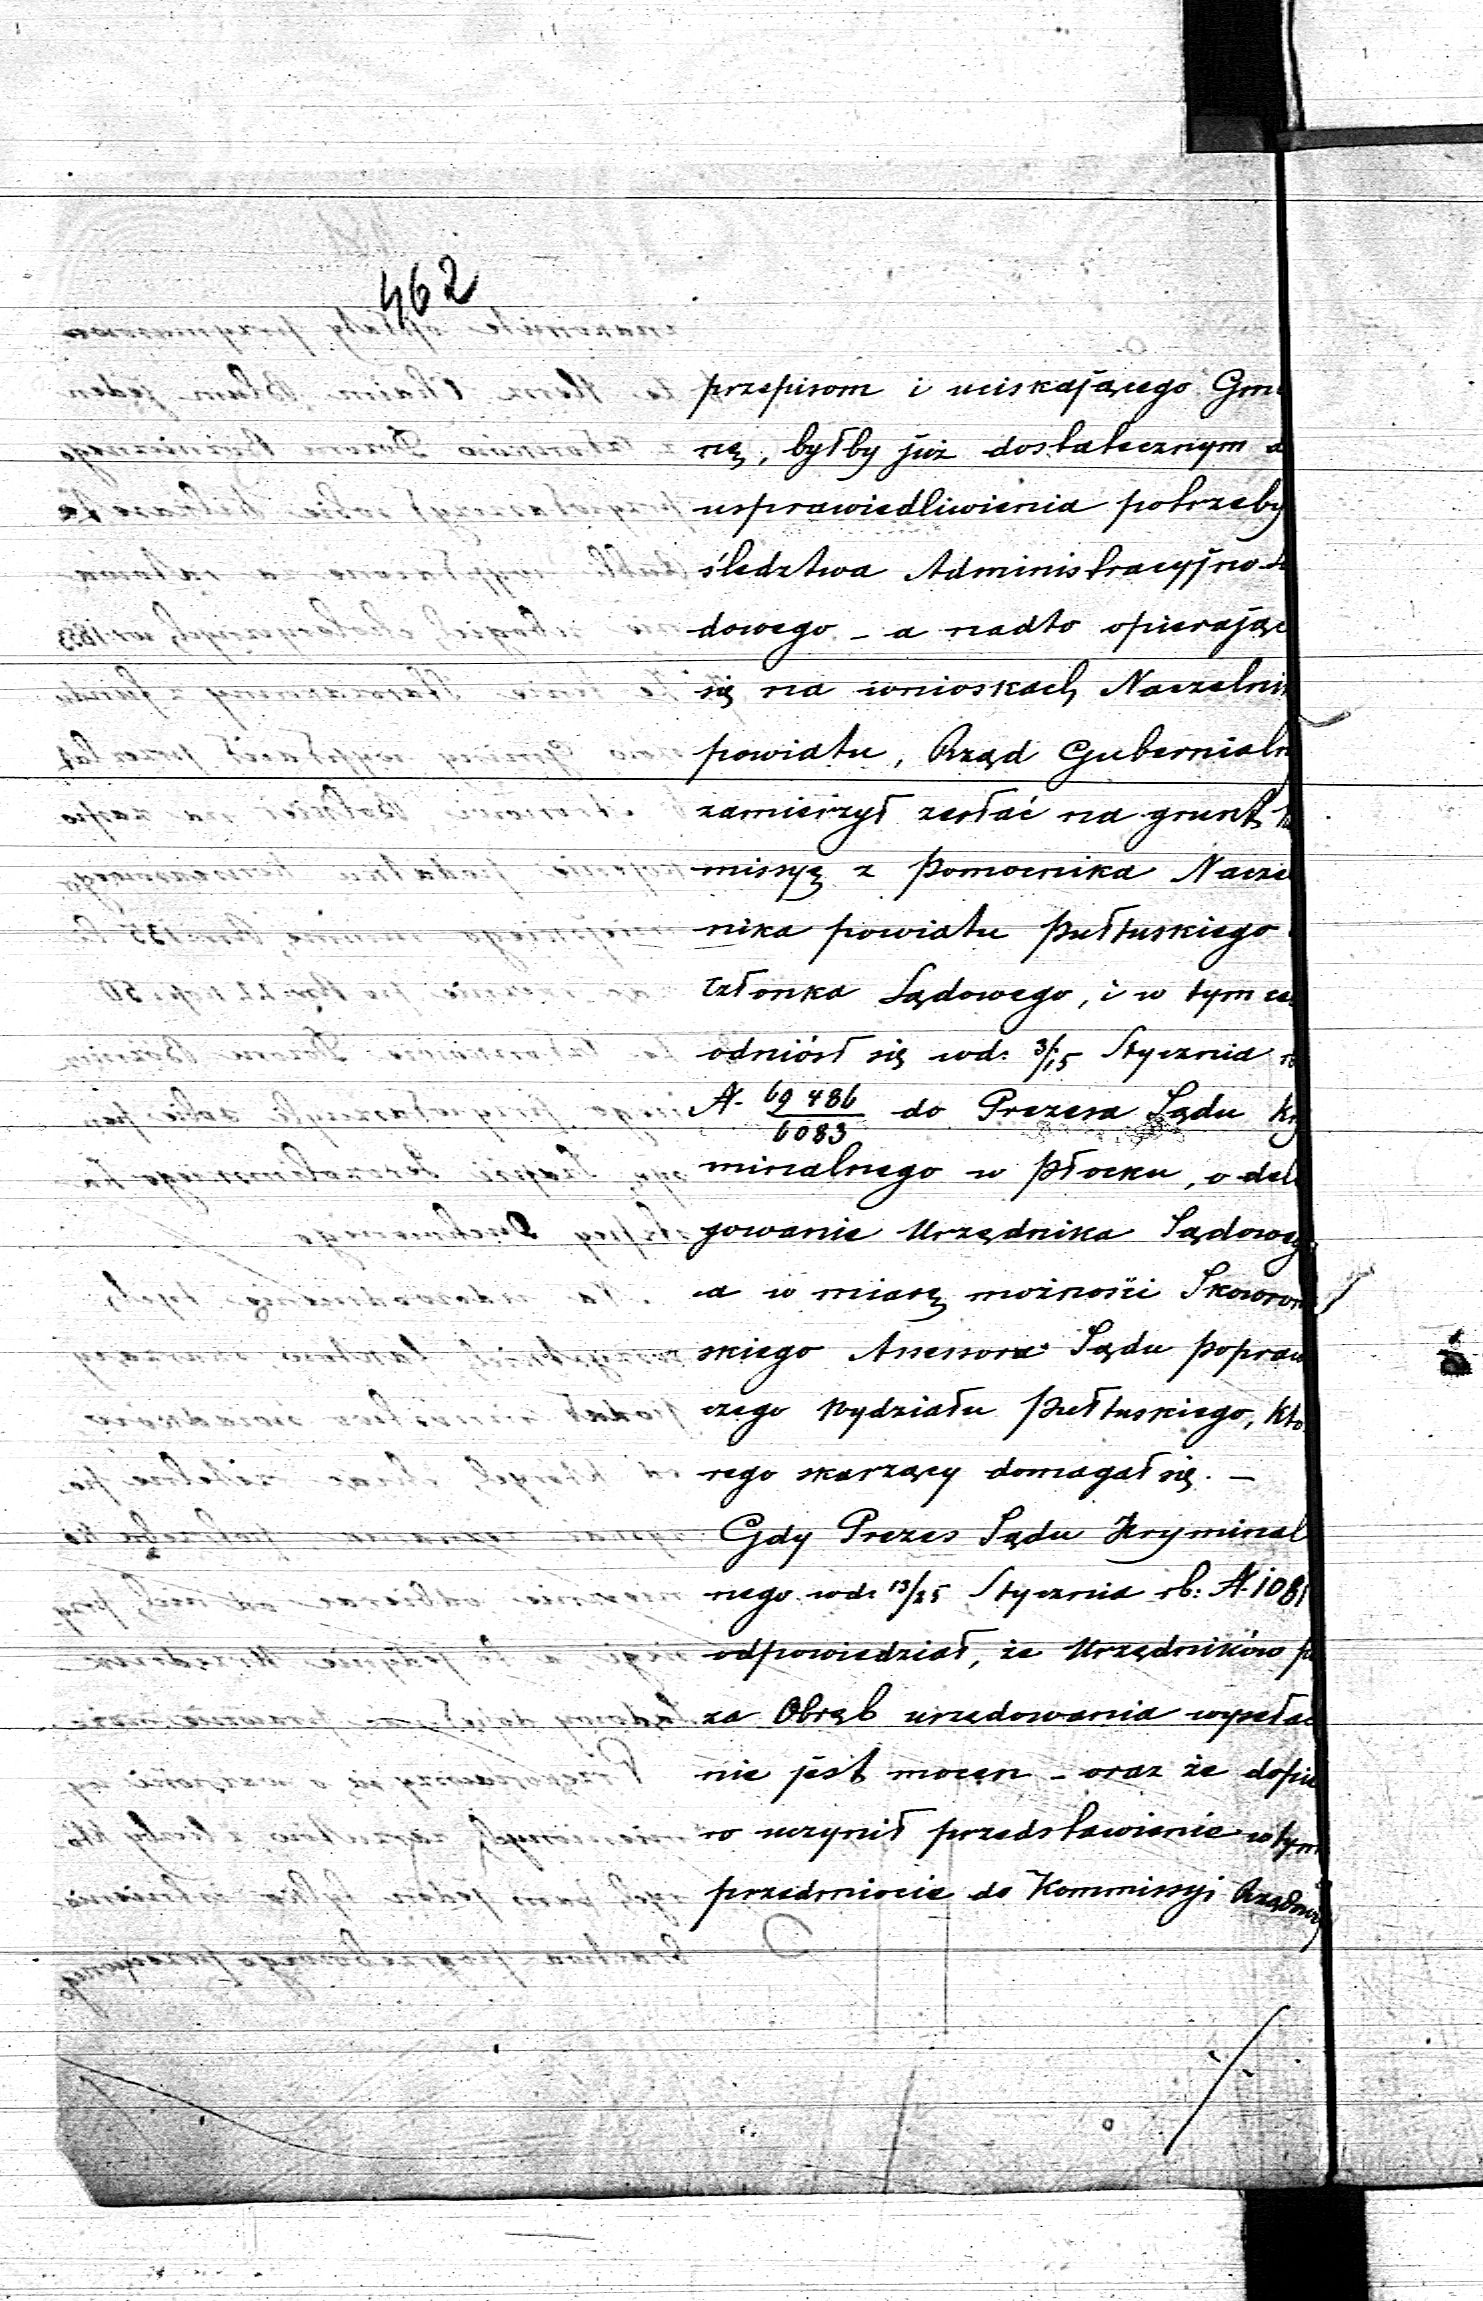 462
przepisom i uciskającego Gmi
nę, byłby już dostatecznym
usprawiedliwienia potrzeby
śledztwa Administracyjno-
dowego - a nadto opierając
się na wnioskach Naczelni
powiatu, Rząd Gubernialn
zamierzył zesłać na grunt
missyę z Pomocnika Nacze
nika powiatu Pułtuskiego
Członka Sądowego, i w tym
odniósł się wd: 3/15 Stycznia
N. 69486/6083 do Prezesa Sądu Kry
minalnego w Płocku, o dele
gowanie Urzędnika Sądoweg
a w miarę możności Skowron
skiego Assessora Sądu Popraw
czego Wydziału Pułtuskiego, któ
rego skarzący domagał się. -
Gdy Prezes Sądu Kryminal
nego wd: 13/25 Stycznia rb: N. 1081
odpowiedział, że Urzędników po
za Obręb urzędowania wysełać
nie jest mocen - oraz że dopie
ro uczynił przedstawienie w tym
przedmiocie do Kommissyi Rządowej